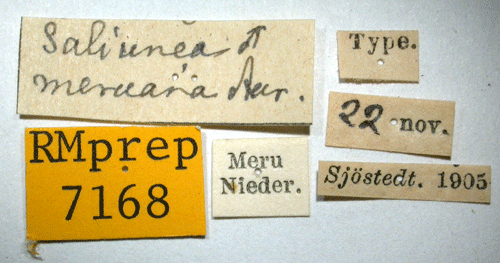 Saliunca ♂
meruana Aur.
Type.
22 nov.
RMprep
7168
Meru
Nieder.
Sjöstedt. 1905